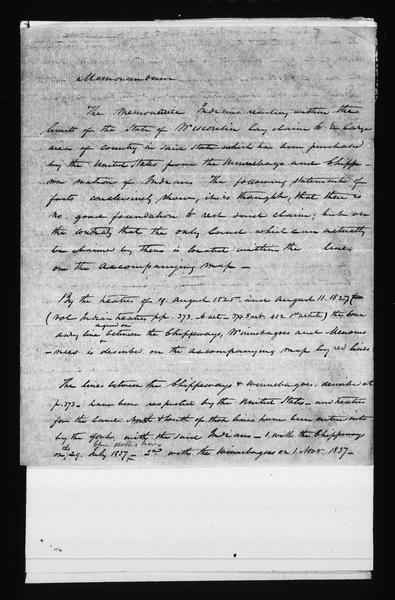 Memorandum
The Menominie Indians residing within the
limits of the State of Wisconsin lay claim to a large
area of country in said State which has been purchased
by the United States from the Winnebago and Chippe-
wa nation of Indians. The following statement of
facts conclusively show, it is thought, that there is
no good foundation to rest such claim; but on
the contrary that the only land which can actually
be claimed by them is located within the lines
on the accompanying map —
By the treaties of 19. August 1825 and August 11. 1827
(Vol Indian treaties pp. 373. 6 art. 374 8 art 412 1st article) the boun
dary line agreed on between the Chippeways, Winnebagoes and Menomi
-nees is described on the accompanying map by red lines
The lines between the Chippeways & Winnebagoes, described at
p. 373 - have been respected by the United States - and treaties
for the land North & South of those lines have been enter into
by the Govt. with the said Indians - 1. with the Chippeways
on the 29. July 1837 - 2nd with the Winnebagoes on 1 Nov. 1837 -